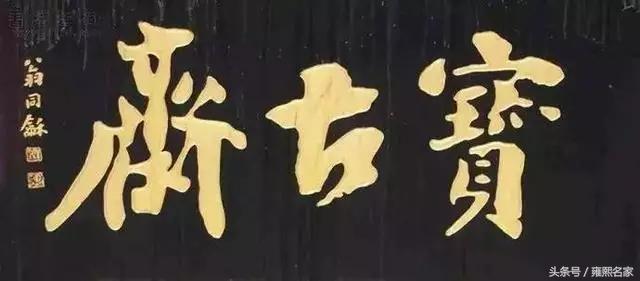 寶古齋
翁同龢
头条号 / 雍熙名家